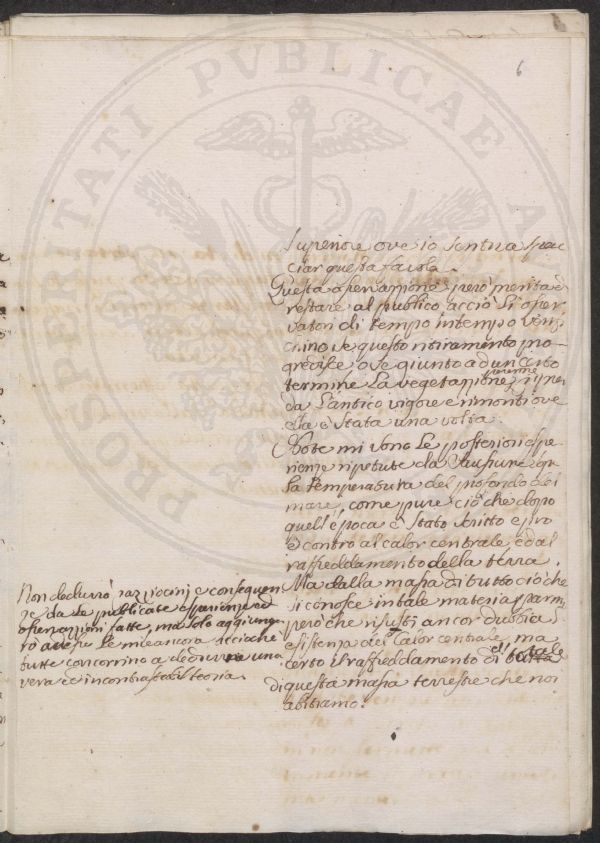 PROSPERITATI PVBLICAE AV
6
superiore ove io sentiva spac
ciar questa favola.
Questa osservazione però merita di
restare al publico acciò si osser
vatori di tempo in tempo veri
chino se questo ritiramento pro-
gredisce, o se giunto ad un certo
termine la vegetazione perenne ripren
da l'antico vigore e rimonti ove
ella è stata una volta.
Note mi sono le posteriori espe
rienze ripetute da Saussure su
la temperatura del profondo dei
mari, come pure ciò che dopo
quell'época è stato scritto e pro
e contro al calor centrale, ed al
raffreddamento della terra.
Ma dalla massa di tutto ciò che
si conosce in tale materia parmi
però che risulti ancor dubbia
esistenza del calor centrale, ma
certo il raffreddamento
di questa massa terrestre che noi
abitiamo.
Non dedurrò razziocinj e conseguen
ze da le publicate esperienze ed
osservazioni fatte, ma solo aggiunge
rò le mie ancora acciochè
tutte concorrino a dedurre una
vera ed incontrastabil teoria.